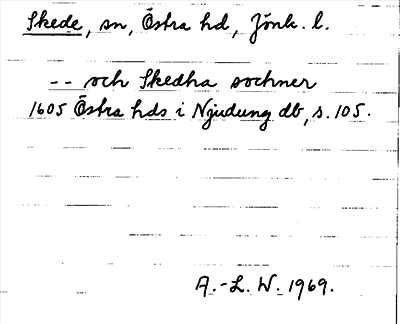 Skede, sn, Östra hd, Jönk. l.
-- och Skedha sochner
1605 Östra hds i Njudung db, s. 105.
A.-L. W. 1969.